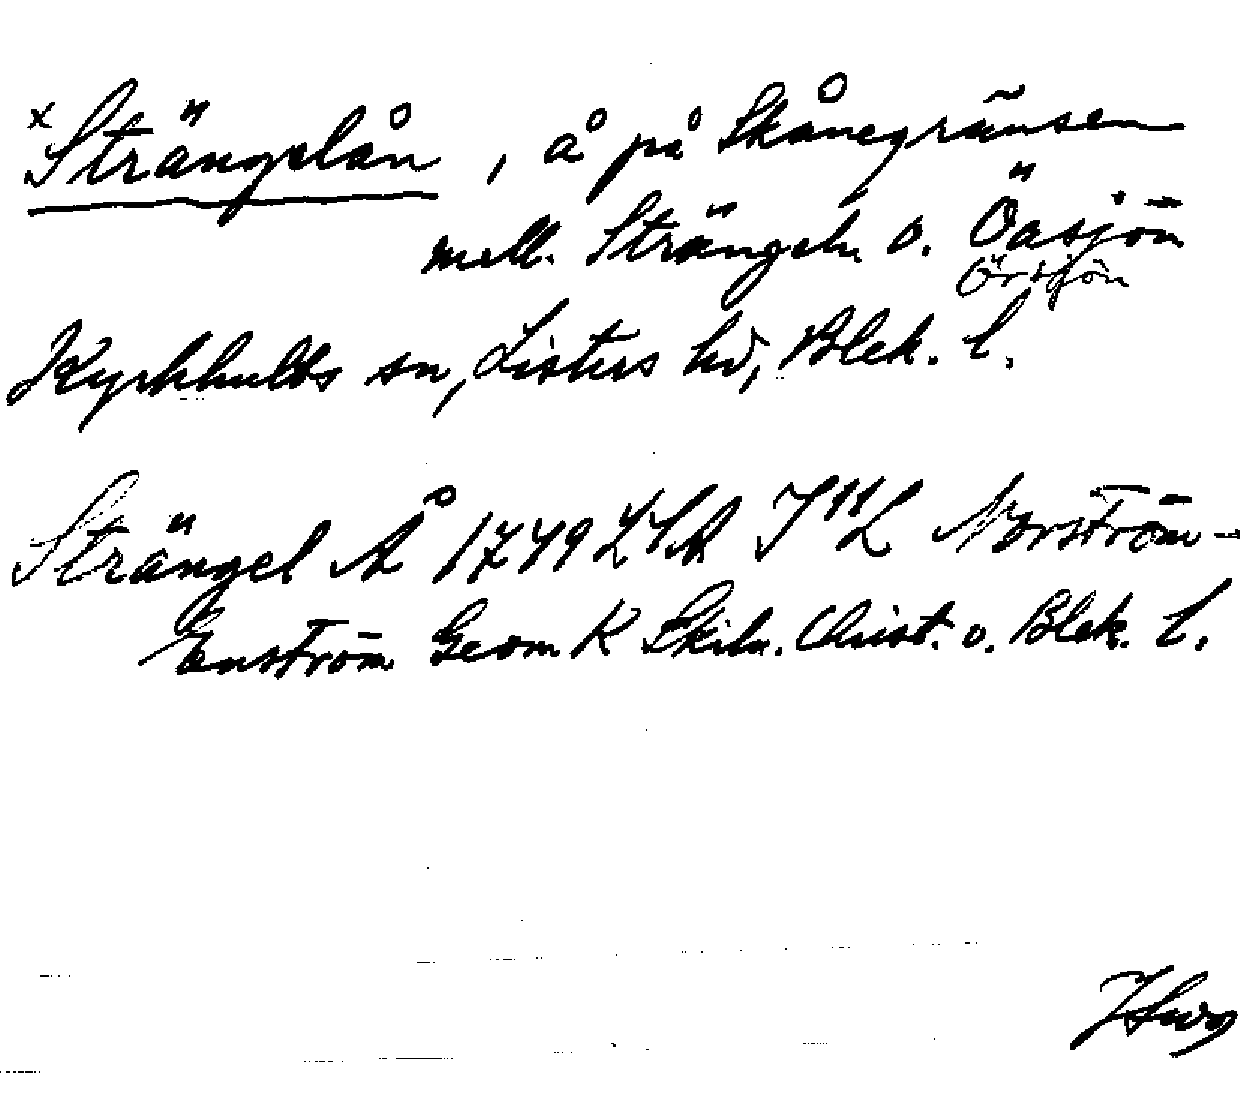 x Strängelån, å på Skånegränsen
mell. Strängeln o. Öasjön
Örsjön
Kyrkhults sn, Listers hd, Blek. l.
Strängel Å 1749 LSA Norström-
Enström Geom K Skiln. Christ. o. Blek. l.